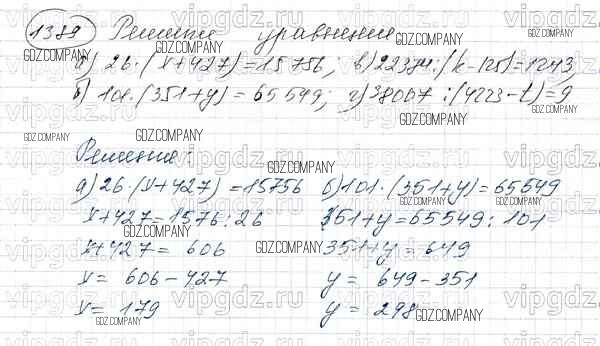 1389 Решите уравнение
а) 26·(x+427)=15756; в) 22374:(k-125)=1243;
б) 101·(351+y)=65549; г) 38007:(4223-t)=9
Решение:
а) 26·(x+427)=15756
x+427=1576:26
x+427=606
x=606-427
x=179
б) 101·(351+y)=65549
351+y=65549:101
351+y=649
y=649-351
y=298